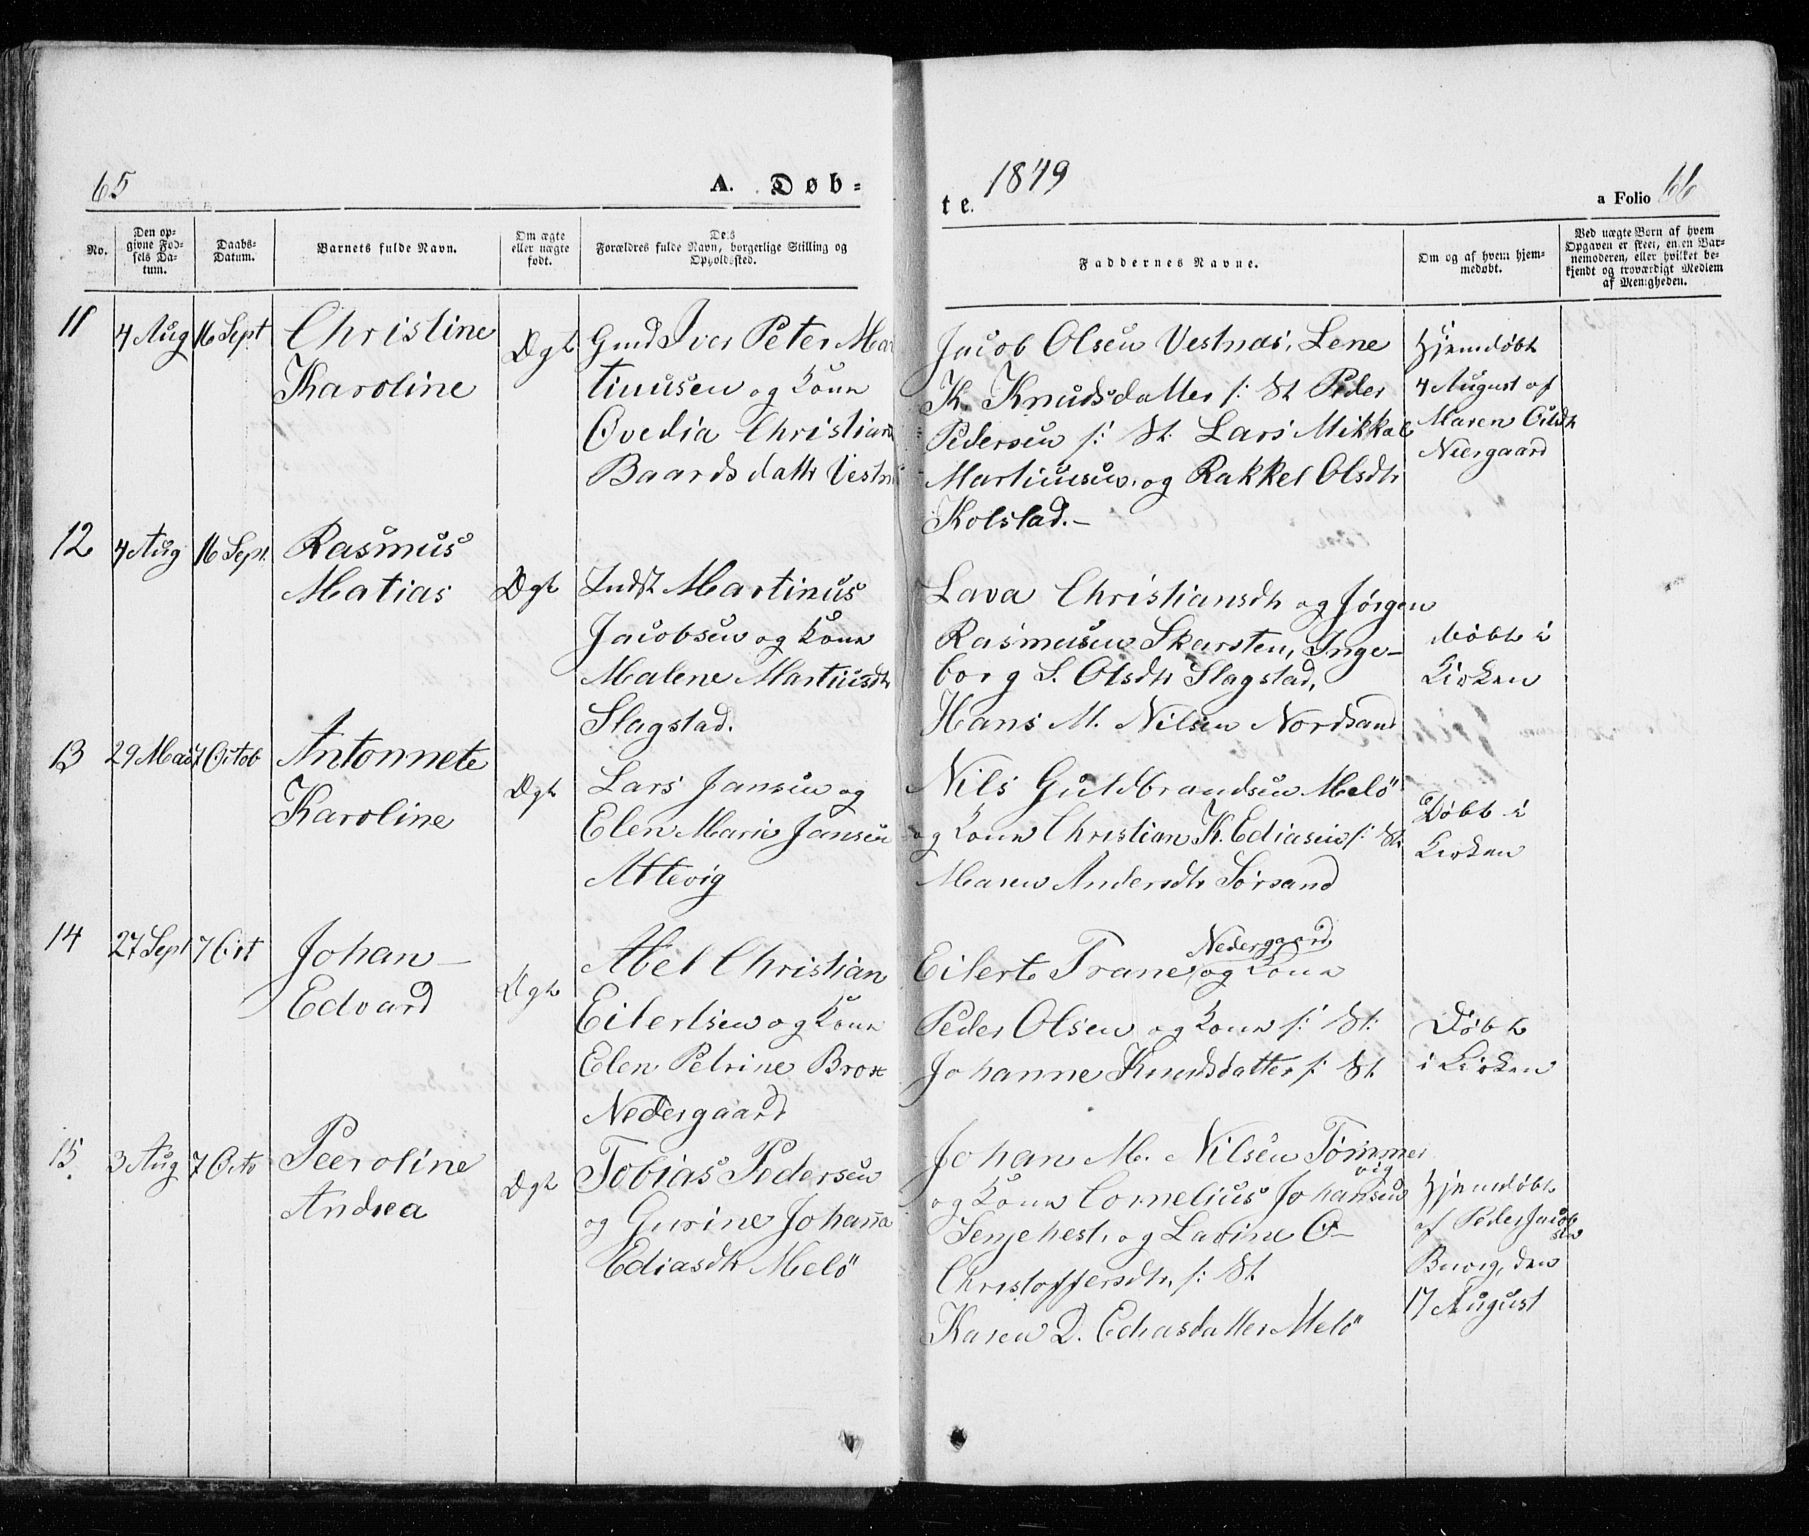 65
A. Døb=
te.
1849
a Folio 66
No.
Den op-
givne Fød-
sels Da-
tum.
Daabs-
Datum.
Barnets fulde Navn.
Om ægte
eller uægte
født.
Dets
Forældres fulde Navn, borgerlige Stilling og
Opholdssted.
Faddernes Navne.
Om og af hvem hjem-
medøbt.
Ved uægte Børn af hvem
Opgaven er skeet, enten Bar-
nemoderen, eller hvilket be-
kjendt og troværdigt Medlem
af Menigheden.
11
4 Aug
16 Sept
Christine
Karoline
Ægt
Gmd Iver Peter Mar
tinusen og Kone
Øvedia Christiana
Baardsdattr Vestn
Jacob Olsen Vestnæs, Lene
K. Knudsdatter f: St Peder
Pedersen f: St. Lars Mikkal
Martinusen, og Rakkel Olsdtr
Kolstad.-
Hjemdøbt
4 August af
Maren
Neergaard
12
4 Aug
16 Sept.
Rasmus
Matias
Ægt
Indst Martinus
Jacobsen og Kone
Malene Martinsdtr
Slagstad.
Lava Christiansdtr og Jørgen
Rasmusen Skarsten, Inge-
borg S. Olsdtr Slagstad,
Hans M. Nilsen Nordsand
døbt i
Kirken
13
29 Mai
7 Octob
Antonnete
Karoline
Ægt
Lars Jansen og
Elen Marie Jansen
Attevig
Nils Guldbrandsen Melö
og Kone Christian K. Ediasen f: St.
Maren Andersdtr Sörsand
Døbt i
Kirken
14
27 Sept
7 Oct
Johan
Edvard
Ægt
Abel Christian
Eilertsen og Kone
Elen Petrine Brox
Nedergaard
Nedergaard
Eilert Trane, og Kone
Peder Olsen og Kone f: St:
Johanne Knudsdatter f: St.
Døbt
i Kirken
15.
3 Aug
7 Octo
Peeroline
Andrea
Ægt
Tobias Pedersen
og Gurine Johanna
Ediasdtr Melö
Johan M. Nilsen Tømmer
vig
og Kone Cornelius Johansen
Senjehest, og Lavine O-
Christoffersdtr, f: St
Karen D. Ediasdatter Melö
Hjemdøbt
af Peder Jacob
sen
Buvig, den
17 August